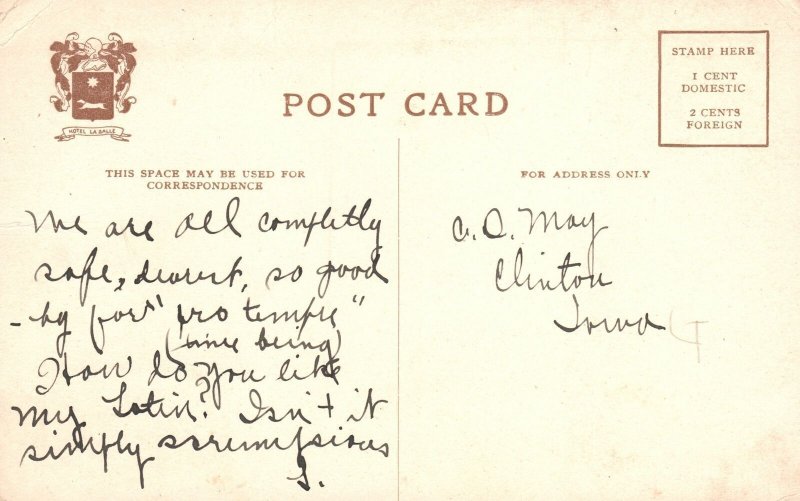 HOTEL LA SALLE
POST CARD
STAMP HERE
1 CENT
DOMESTIC
2 CENTS
FOREIGN
THIS SPACE MAY BE USED FOR
CORRESPONDENCE
FOR ADDRESS ONLY
We are all completly
safe, dearest, so good
-by for "pro tempre"
(time being)
How do you like
my Latin? Isn't it
simply scrumpsious
C. D. May
Clinton
Iowa